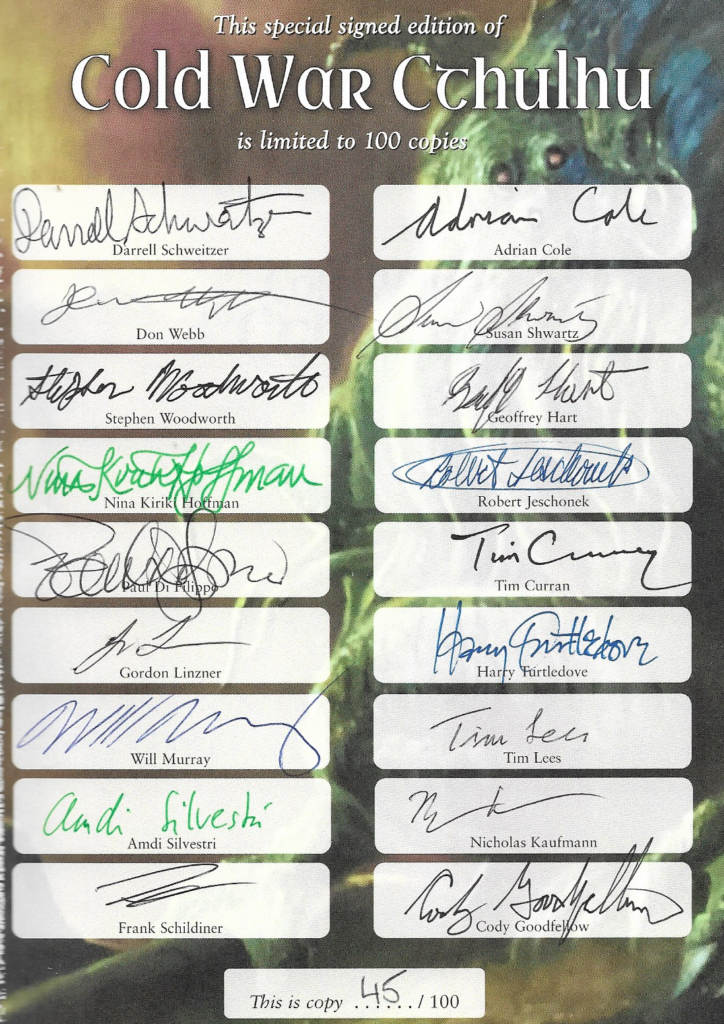 This special signed edition of
Cold War Cthulhu
is limited to 100 copies
Darrell Schweitzer
Darrell Schweitzer
Adrian Cole
Adrian Cole
Don Webb
Susan Shwartz
Susan Shwartz
Stephen Woodworth
Stephen Woodworth
Geoffrey Hart
Nina Kiriki Hoffman
Nina Kiriki Hoffman
Robert Jeschonek
Robert Jeschonek
Paul Di Filippo
Tim Curran
Tim Curran
Gordon Linzner
Harry Turtledove
Harry Turtledove
Will Murray
Tim Lees
Tim Lees
Amdi Silvestri
Amdi Silvestri
Nicholas Kaufmann
Frank Schildiner
Cody Goodfellow
Cody Goodfellow
This is copy ..45.../ 100